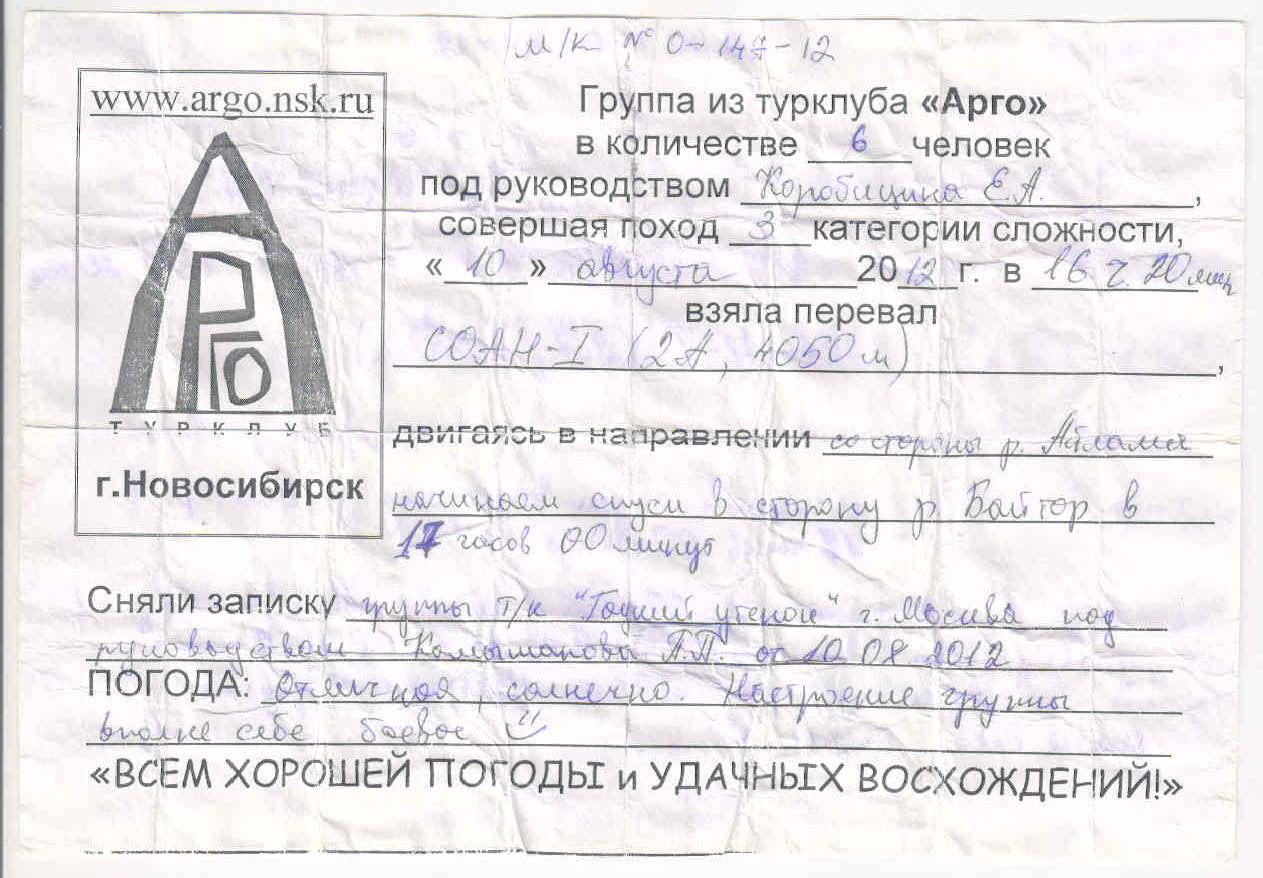 М/К № 0-147-12
www.argo.nsk.ru
АРГО
ТУРКЛУБ
г.Новосибирск
Группа из турклуба «Арго»
в количестве 6 человек
под руководством Коробицина Е.А.,
совершая поход 3 категории сложности,
«10» августа 2012 г. в 16 ч. 20 мин
взяла перевал
СОАН-I (2А, 4050 м),
двигаясь в направлении со стороны р. Айлама
начинаем спуск в сторону р. Байтор в
17 часов 00 минут
Сняли записку группы т/к "Гадкий утенок" г. Москва под
руководством А.П. от 10 08 2012
ПОГОДА: Отличная, солнечно. Настроение группы
вполне себе боевое
«ВСЕМ ХОРОШЕЙ ПОГОДЫ и УДАЧНЫХ ВОСХОЖДЕНИЙ!»